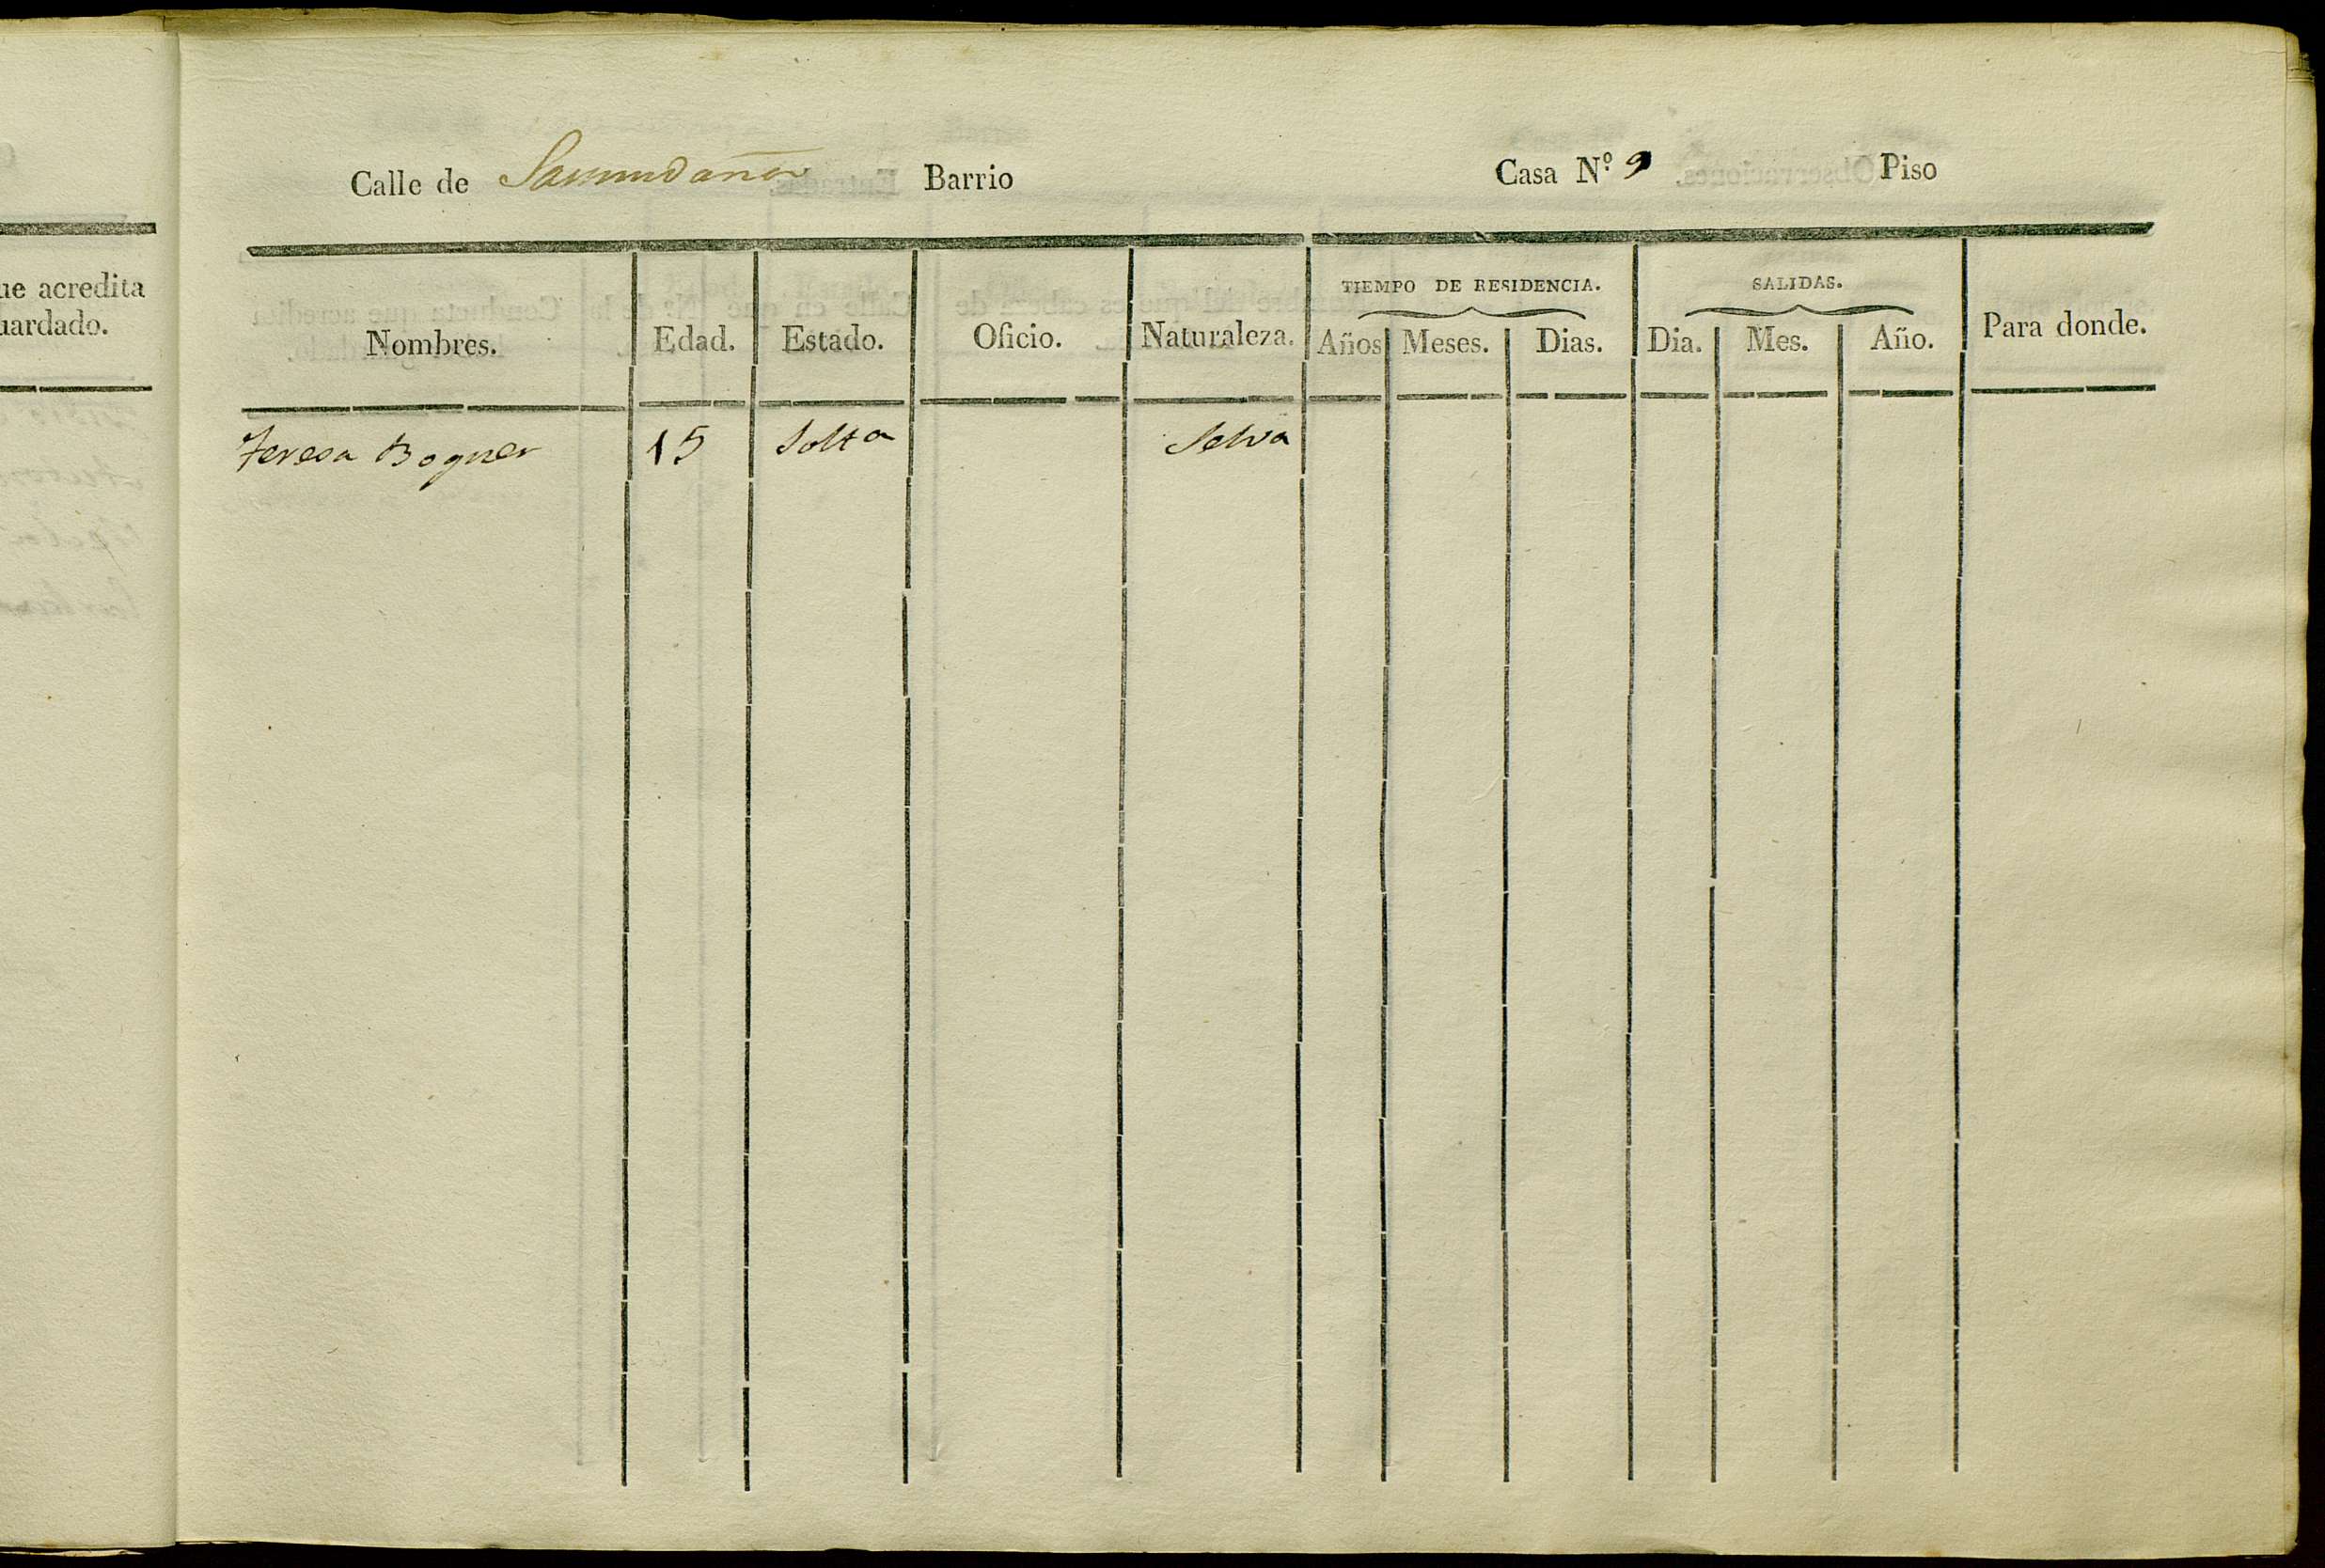 ue acredita
uardado.
Calle de Barrio Casa N.º 9 Piso
Nombres. Edad. Estado. Oficio. Naturaleza. TIEMPO DE RESIDENCIA. Años Meses. Dias. SALIDAS. Dia. Mes. Año. Para donde.
Teresa Bogner 15 Solta Selva